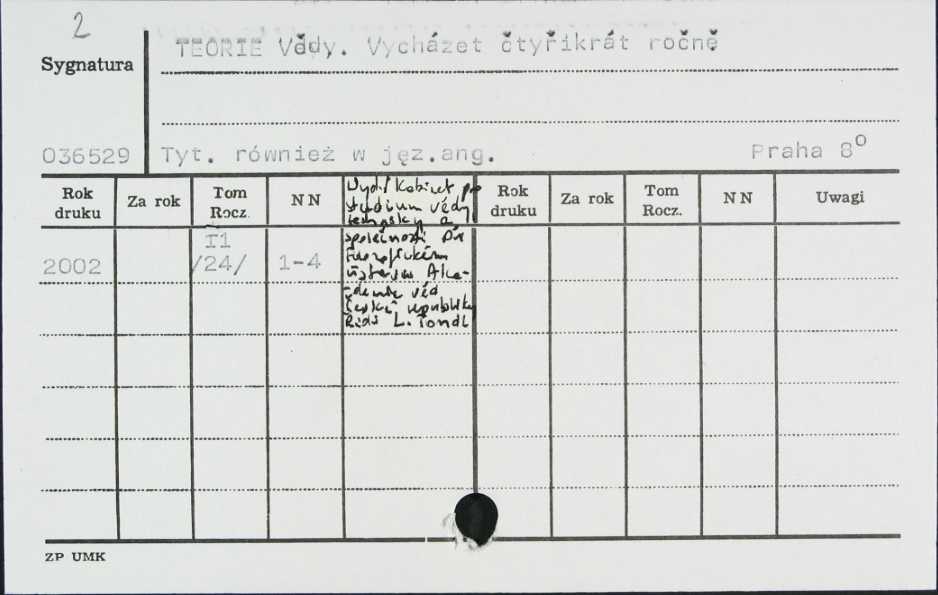 2
TEORIE Vědy. Vycházet čtyřikrát ročně
Sygnatura
036529 Tyt. również w jęz.ang. Praha 8°
Rok druku Za rok Tom Rocz. NN Rok druku Za rok Tom Rocz. NN Uwagi
2002 I1 /24/ 1-4
Vydá Kabinet pro
studium vědy
techniky a
společnosti při
Filozofickém
ústavu Aka-
demie věd
České republiky
Řídí L. Tondl
ZP UMK